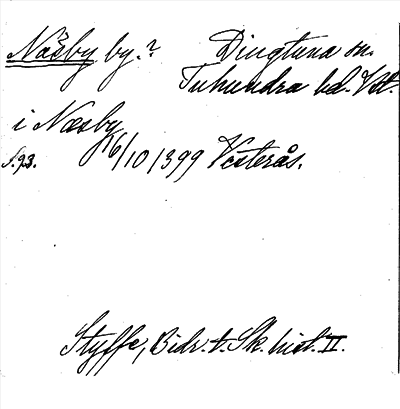 Näsby by.? Dingtuna sn.
Tuhundra hd. Vstm.
i Næsby
s. 93. 16/10 1399 Vesterås.
Styffe, Bidr. t. Sk. hist. II.